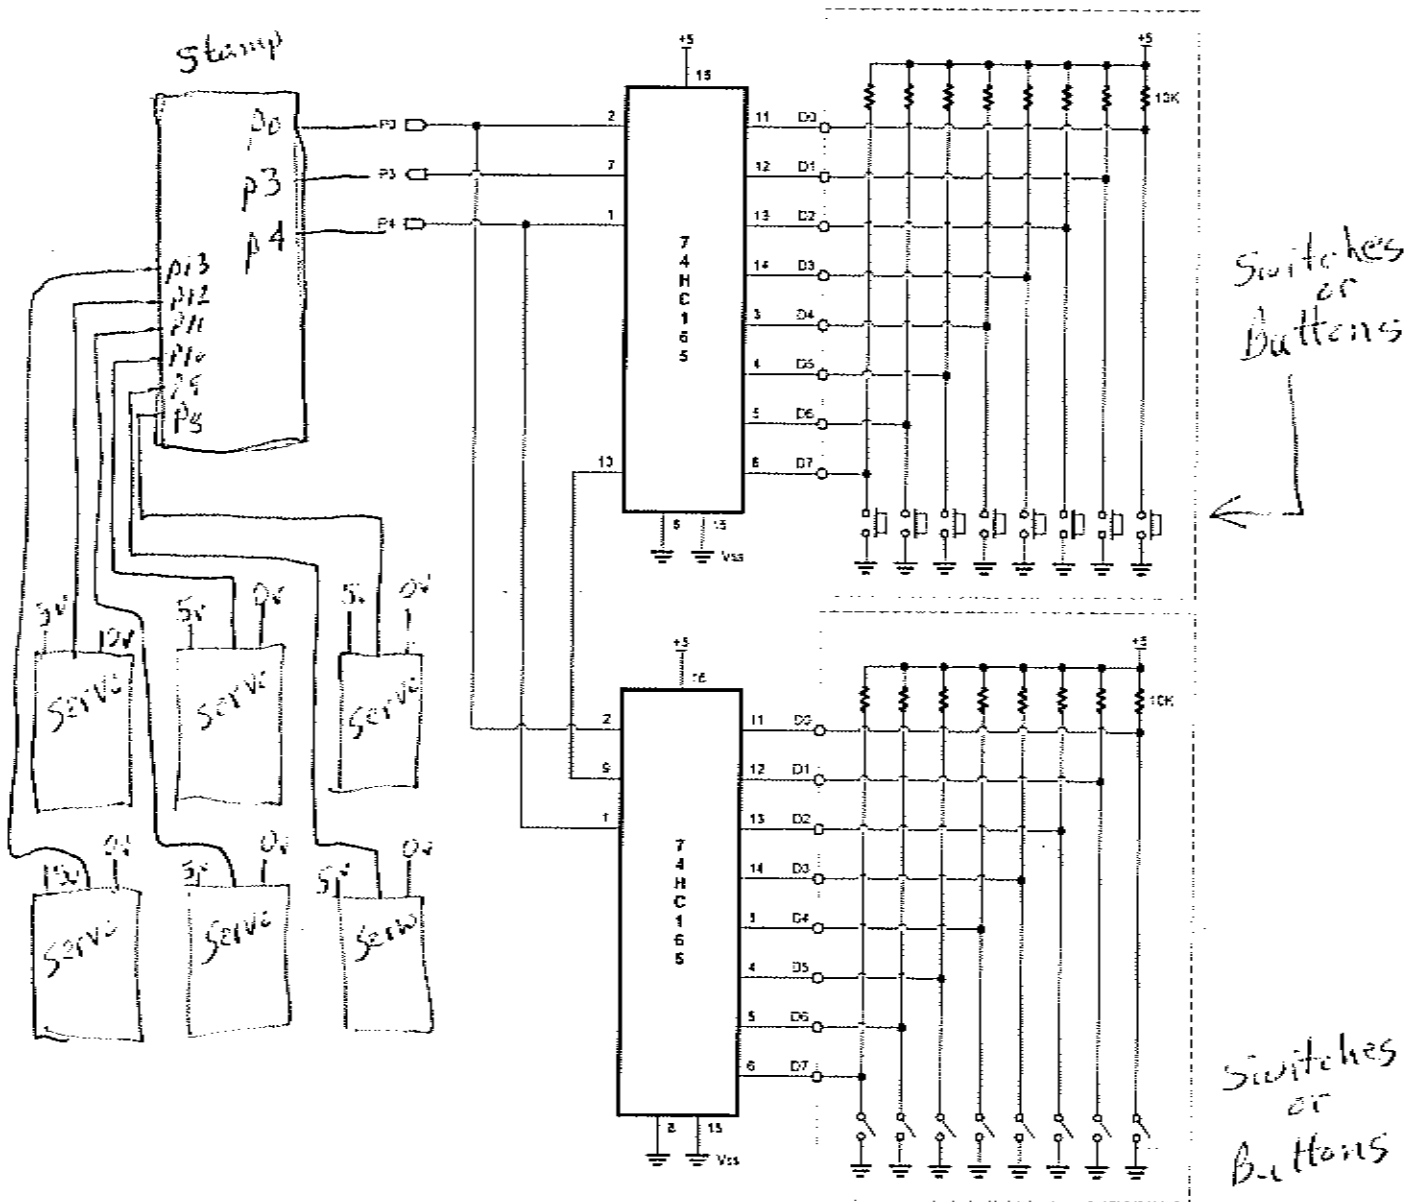 Stamp
P0
P3
P4
P13
P12
P11
P10
P9
P8
P0
P3
P4
+5
2
7
1
10
11 D0
12 D1
13 D2
14 D3
3 D4
4 D5
5 D6
6 D7
74HC165
8
15
Vss
+5
10K
Switches
or
Buttons
5v
0v
Servo
5v
0v
Servo
5v
0v
Servo
0v
Servo
5v
0v
Servo
5v
0v
Servo
+5
16
2
9
1
11 D0
12 D1
13 D2
14 D3
3 D4
4 D5
5 D6
6 D7
74HC165
8
15
Vss
+5
10K
Switches
or
Buttons